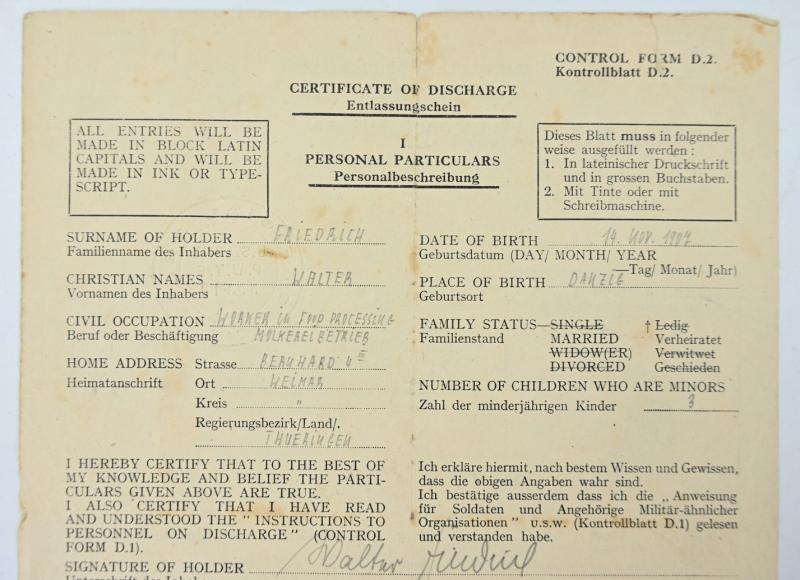 CONTROL FORM D.2.
Kontrollblatt D.2.
CERTIFICATE OF DISCHARGE
Entlassungschein
ALL ENTRIES WILL BE
MADE IN BLOCK LATIN
CAPITALS AND WILL BE
MADE IN INK OR TYPE-
SCRIPT.
I
PERSONAL PARTICULARS
Personalbeschreibung
Dieses Blatt muss in folgender
weise ausgefüllt werden :
1. In lateinischer Druckschrift
und in grossen Buchstaben.
2. Mit Tinte oder mit
Schreibmaschine.
SURNAME OF HOLDER FRIEDRICH
Familienname des Inhabers
CHRISTIAN NAMES WALTER
Vornamen des Inhabers
CIVIL OCCUPATION WORKER IN FOOD PROCESSING
Beruf oder Beschäftigung MOLKEREIBETRIEB
HOME ADDRESS Strasse BERNHARD 4 III
Heimatanschrift Ort WEIMAR
Kreis "
Regierungsbezirk/Land/.
THUERINGEN
DATE OF BIRTH 14. NOV. 1907
Geburtsdatum (DAY/ MONTH/ YEAR
—Tag/ Monat/ Jahr)
PLACE OF BIRTH DANZIG
Geburtsort
FAMILY STATUS—SINGLE † Ledig
Familienstand MARRIED Verheiratet
WIDOW(ER) Verwitwet
DIVORCED Geschieden
NUMBER OF CHILDREN WHO ARE MINORS
Zahl der minderjährigen Kinder 3
I HEREBY CERTIFY THAT TO THE BEST OF
MY KNOWLEDGE AND BELIEF THE PARTI-
CULARS GIVEN ABOVE ARE TRUE.
I ALSO CERTIFY THAT I HAVE READ
AND UNDERSTOOD THE " INSTRUCTIONS TO
PERSONNEL ON DISCHARGE " (CONTROL
FORM D.1).
SIGNATURE OF HOLDER Walter Friedrich
Unterschrift des Inhabers
Ich erkläre hiermit, nach bestem Wissen und Gewissen,
dass die obigen Angaben wahr sind.
Ich bestätige ausserdem dass ich die „ Anweisung
für Soldaten und Angehörige Militär-ähnlicher
Organisationen " u.s.w. (Kontrollblatt D.1) gelesen
und verstanden habe.